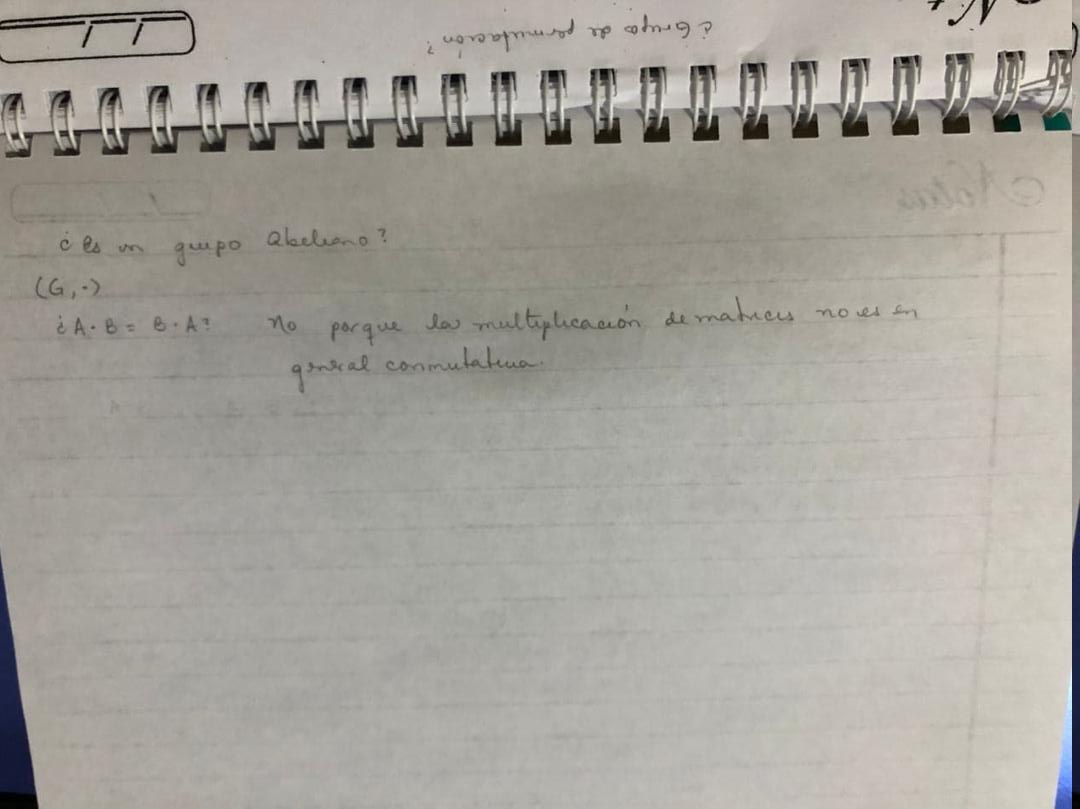 ¿Grupo de permutación?
Notas
¿es un grupo abeliano?
(G,·)
¿A·B = B·A? No porque la multiplicación de matrices no es en
general conmutativa.